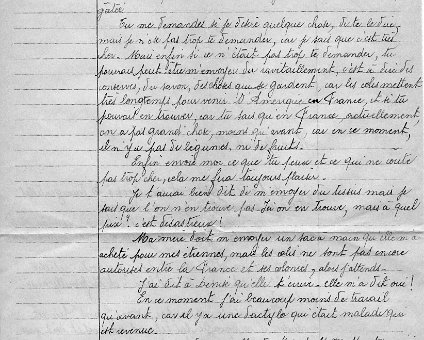 gâter.
Tu me demandes si je désire quelque chose, de te le dire,
mais je n'ose pas trop te demander, car je sais que c'est très
cher. Mais enfin si ce n'était pas trop te demander, tu
pourrais peut-être m'envoyer du ravitaillement, c'est à dire des
conserves, du savon, des choses qui se gardent, car les colis mettent
très longtemps pour venir d'Amérique en France, et si tu
pouvais en trouver, car tu sais qu'en France, actuellement
on a pas grand chose, moins qu'avant, car en ce moment,
il n'y a pas de légumes, ni de fruits.
Enfin envoie moi ce que tu peux et ce qui ne coûte
pas trop cher, cela me fera toujours plaisir.
Je t'aurai bien dit de m'envoyer du tissus mais je
sais que l'on n'en trouve pas. Ici on en trouve, mais à quel
prix? c'est désastreux!
Ma mère doit m'envoyer un sac à main qu'elle m'a
acheté pour mes étrennes, mais les colis ne sont pas encore
autorisés entre la France et ses colonies, alors j'attends.
J'ai dit à Denise qu'elle t'écrive - elle m'a dit oui!
En ce moment j'ai beaucoup moins de travail
qu'avant, car il y a une dactylo qui était malade qui
est revenue.